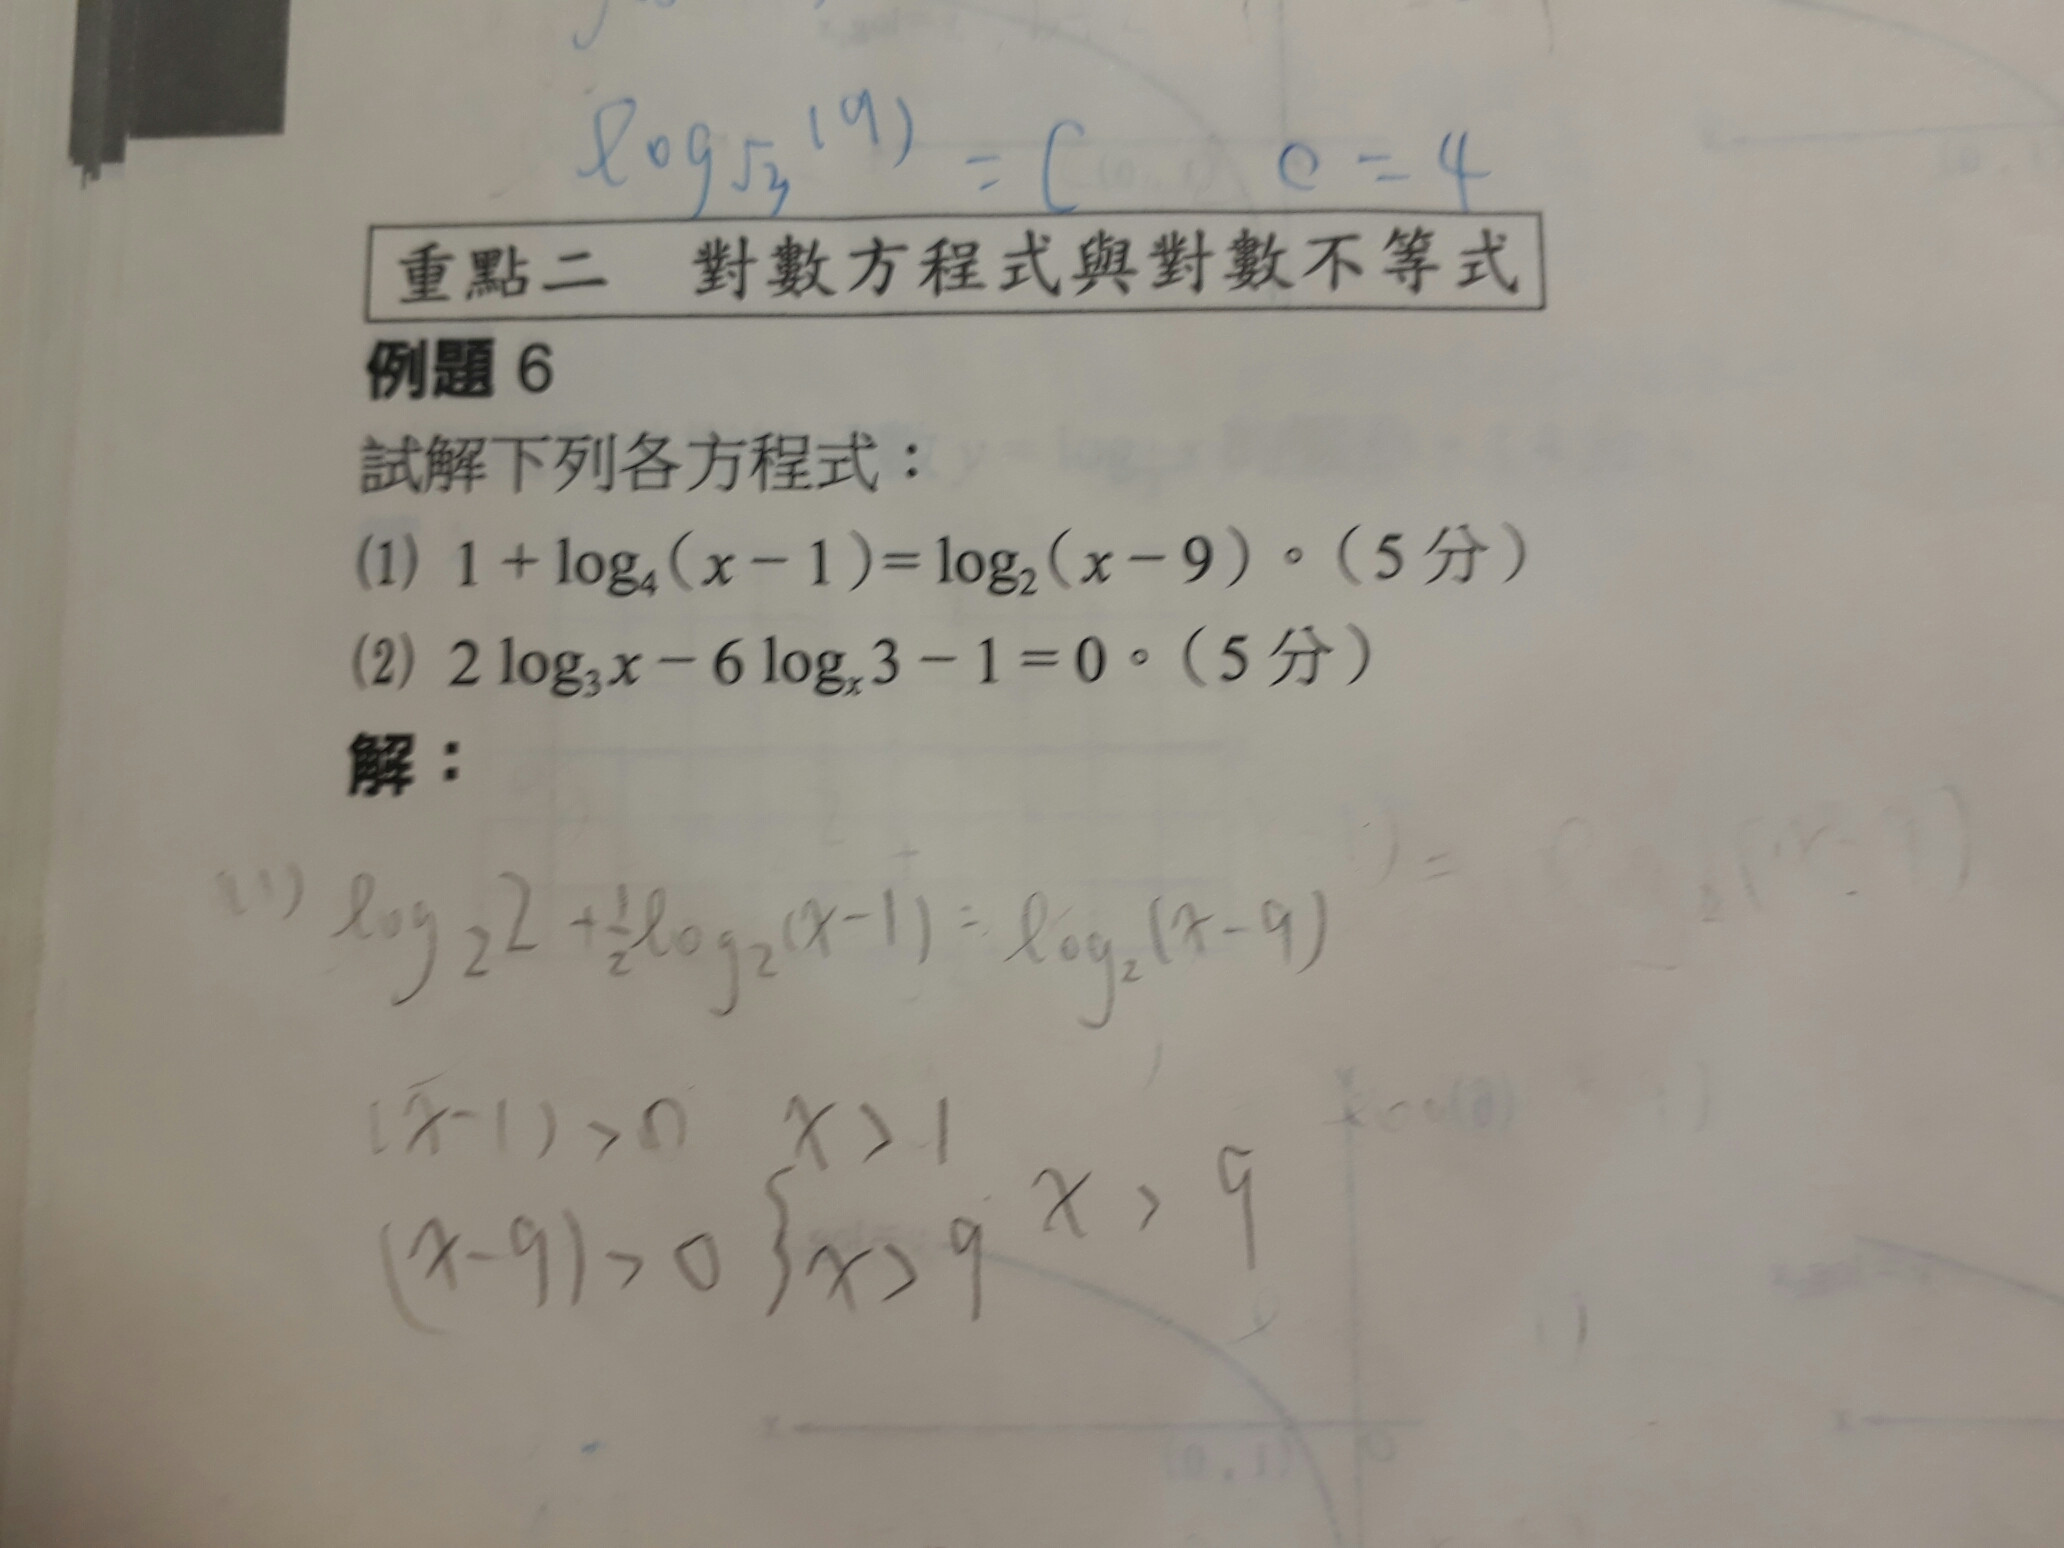 log√3(9) = C c = 4
重點二 對數方程式與對數不等式
例題 6
試解下列各方程式：
(1) 1 + log₄(x − 1) = log₂(x − 9)。(5 分)
(2) 2 log₃x − 6 logₓ3 − 1 = 0。(5 分)
解：
(1) log₂2 + ½log₂(x-1) = log₂(x-9)
(x-1) > 0 x > 1
(x-9) > 0 } x > 9 x > 9